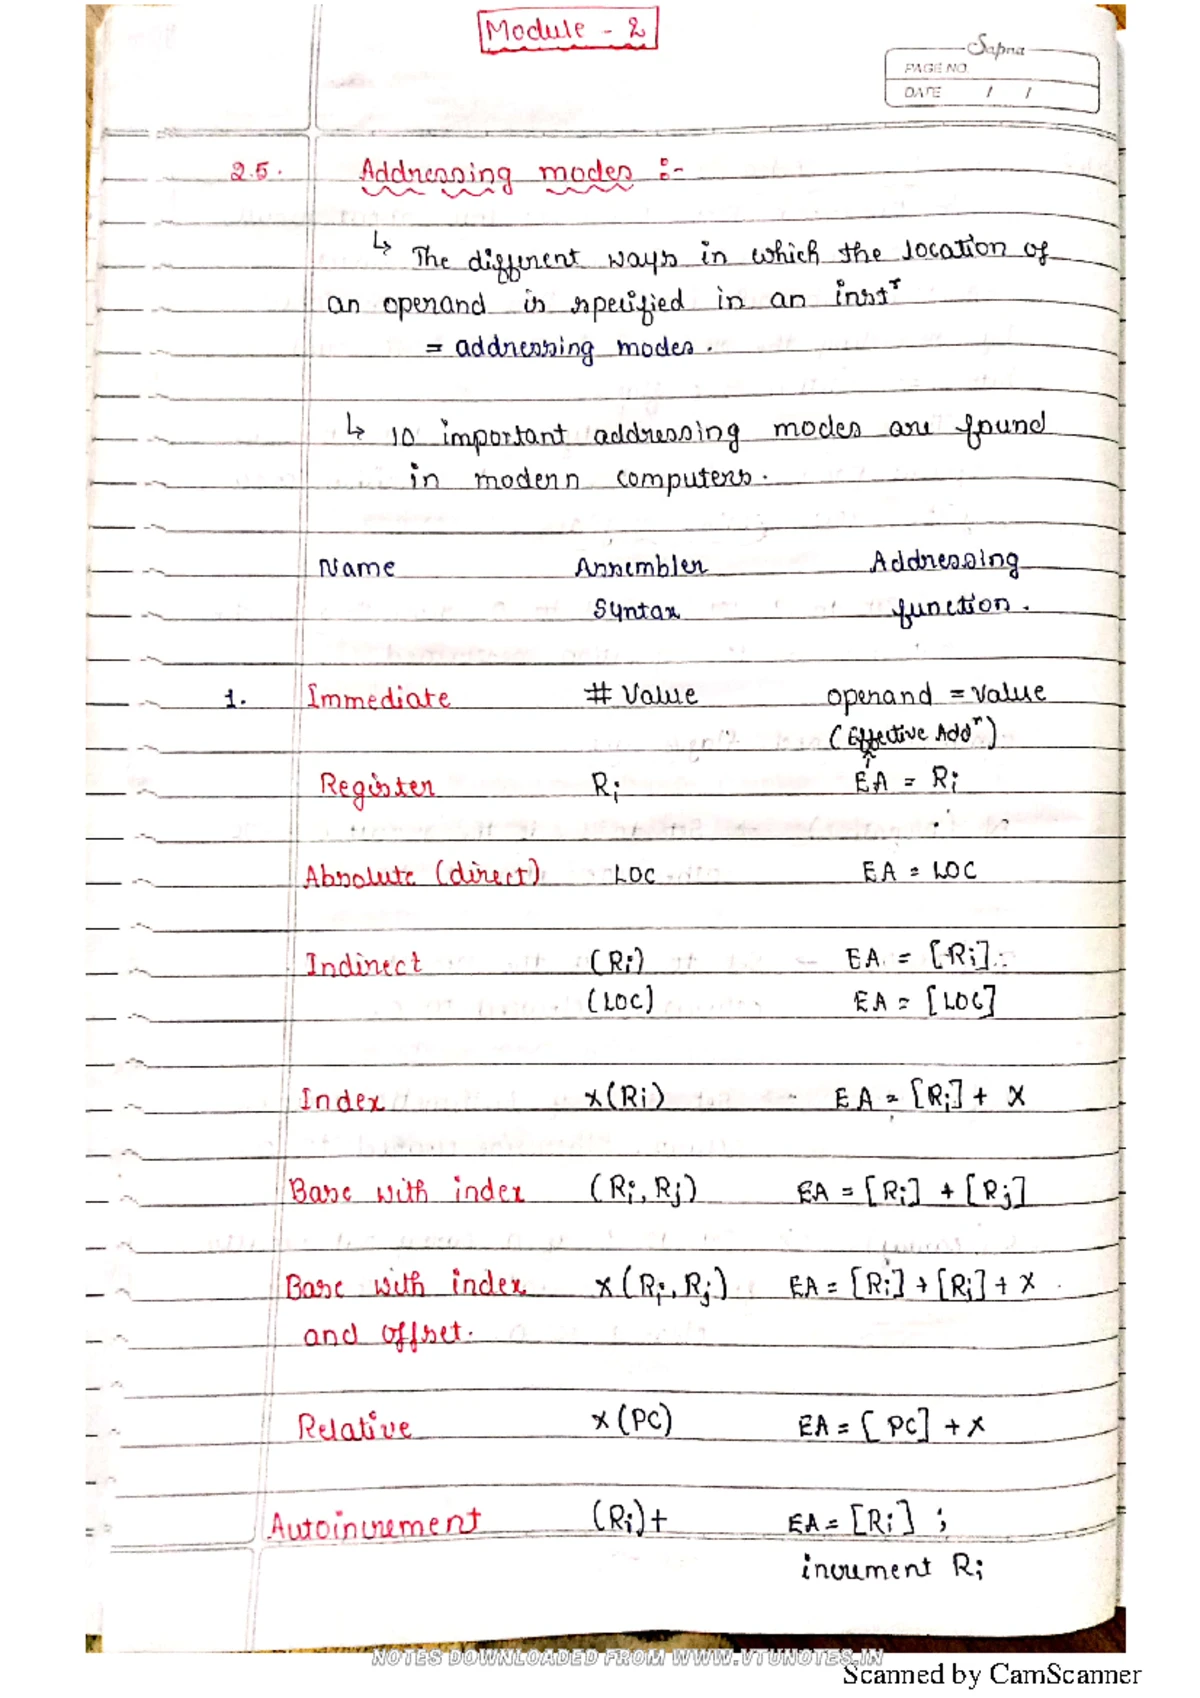 Module - 2
Sapna
PAGE NO.
DATE / /
2.5. Addressing modes :-
↳ The different ways in which the location of
an operand is specified in an instʳ
= addressing modes.
↳ 10 important addressing modes are found
in modern computers.
Name Assembler Addressing
Syntax function.
1. Immediate # Value operand = Value
(Effective Addʳ)
Register Ri EA = Ri
Absolute (direct) LOC EA = LOC
Indirect (Ri) EA = [Ri]
(LOC) EA = [LOC]
Index X(Ri) EA = [Ri] + X
Base with index (Ri, Rj) EA = [Ri] + [Rj]
Base with index X(Ri, Rj) EA = [Ri] + [Rj] + X
and offset.
Relative X(PC) EA = [PC] + X
Autoincrement (Ri)+ EA = [Ri] ;
increment Ri
NOTES DOWNLOADED FROM WWW.VTUNOTES.IN
Scanned by CamScanner